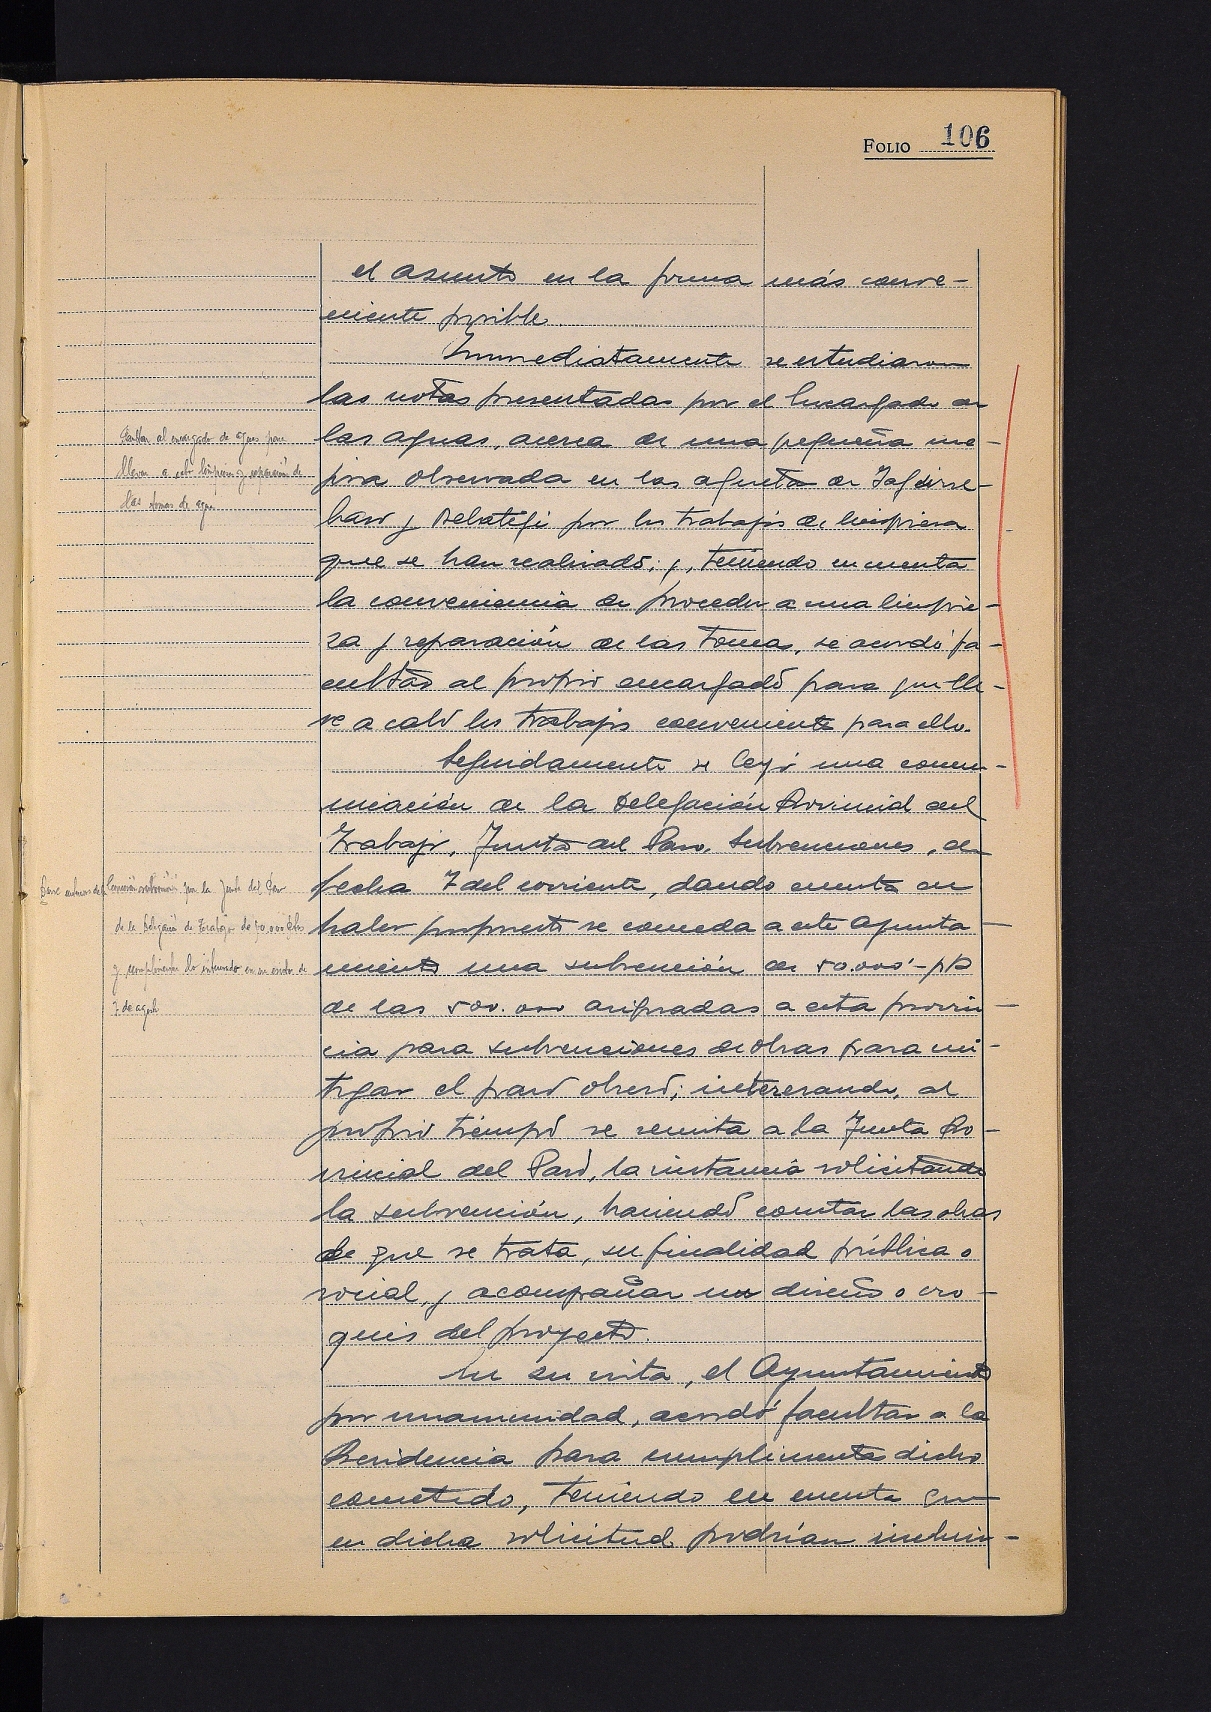 FOLIO 106
el asunto en la forma más conve-
niente posible.
Inmediatamente se estudiaron
las notas presentadas por el Encargado de
las aguas, acerca de una pequeña me-
jora observada en las aguetas de
y por los trabajos de limpieza
que se han realizado, y, teniendo en cuenta
la conveniencia de proceder a una limpie-
za y reparación de las tomas, se acordó fa-
cultar al propio encargado para que lle-
ve a cabo los trabajos conveniente para ello.
Seguidamente se leyó una comu-
nicación de la Delegación Provincial del
Trabajo, Junta del Paro, Subvenciones, de
fecha 7 del corriente, dando cuenta de
haber propuesto se conceda a este Ayunta-
miento una subvención de 50.000'- pts
de las 500.000 asignadas a esta provin-
cia para subvenciones de obras para mi-
tigar el paro obrero; interesando, al
propio tiempo se remita a la Junta Pro-
vincial del Paro, la instancia solicitando
la subvención, haciendo constar las obras
de que se trata, su finalidad pública o
social, y acompañar un diseño o cro-
quis del proyecto.
En su vista, el Ayuntamiento
por unanimidad, acordó facultar a la
Presidencia para cumplimentar dicho
cometido, teniendo en cuenta que
en dicha solicitud podrían incluir-
al encargado de aguas para
llevar a cabo limpieza y reparación de
las tomas de agua
por la Junta del Paro
de la Delegación de Trabajo de 50.000 ptas
y cumplimentar lo interesado en su escrito de
7 de agosto